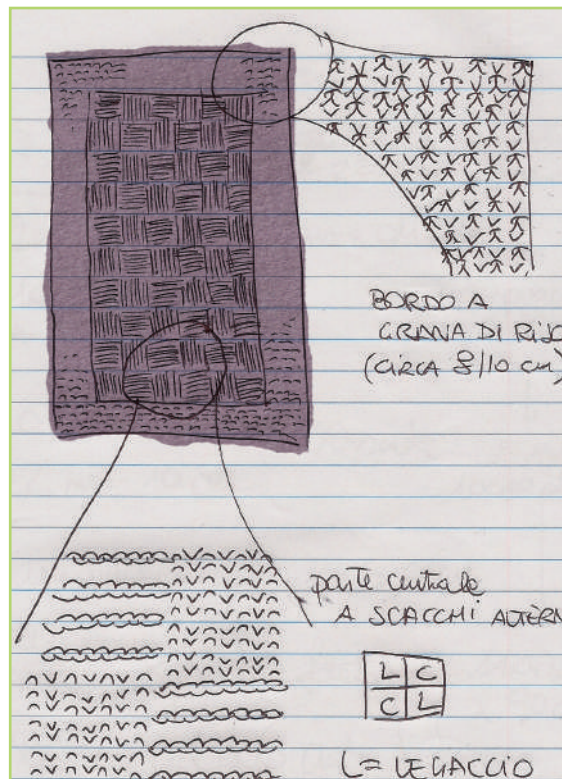 BORDO A
GRANA DI RISO
(CIRCA 8/10 cm)
parte centrale
A SCACCHI ALTERN
L C
C L
L = LEGACCIO